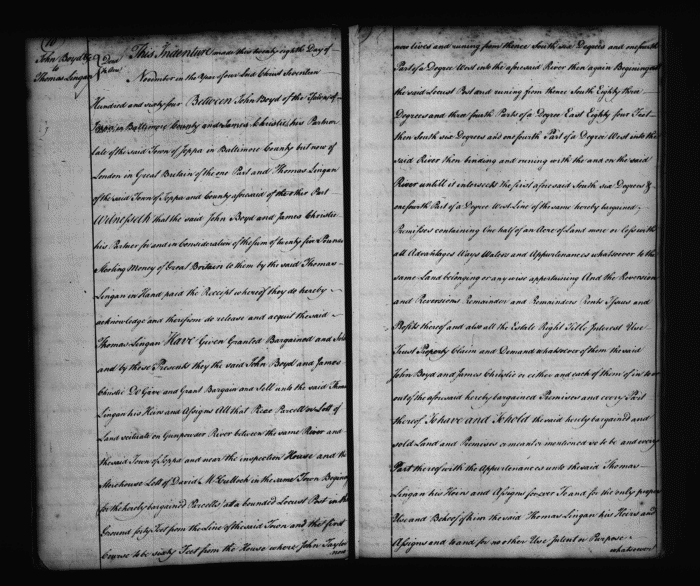 10
John Boyd &c
to
Thomas Lingan
Deed
This Indenture made this twenty eighth Day of
November in the Year of our Lord Christ Seventeen
Hundred and sixty four Between John Boyd of the Town of
Joppa in Baltimore County and James Christie his Partner
late of the said Town of Joppa in Baltimore County but now of
London in Great Britain of the one Part and Thomas Lingan
of the said Town of Joppa and County aforesaid of the other Part
Witnesseth that the said John Boyd and James Christie
his Partner for and in Consideration of the sum of twenty five Pounds
Sterling Money of Great Britain to them by the said Thomas
Lingan in Hand paid the Receipt whereof they do hereby
acknowledge and therefrom do release and acquit the said
Thomas Lingan Have Given Granted Bargained and Sold
and by these Presents they the said John Boyd and James
Christie Do Give and Grant Bargain and Sell unto the said Thomas
Lingan his Heirs and Assigns All that Peice Parcell or Lott of
Land situate on Gunpowder River between the same River and
the said Town of Joppa and near the inspection House and the
Storehouse Lott of David McCulloch in the same Town Begining
for the hereby bargained Parcell at a bounded Locust Post in the
Ground forty Feet from the Line of the said Town and the first
Course to be sixty Feet from the House where John Taylor
now
now lives and runing from thence South six Degrees and one fourth
Part of a Degree West into the aforesaid River then again Begining at
the said Locust Post and runing from thence South Eighty three
Degrees and three fourth Parts of a Degree East Eighty four Feet
then South six Degrees and one fourth Part of a Degree West into the
said River then binding and runing with the and on the said
River untill it intersects the first aforesaid South six Degrees &
one fourth Part of a Degree West Line of the same hereby bargained
Premisses containing One half of an Acre of Land more or less with
all Advantages Ways Waters and Appurtenances whatsoever to the
same Land belonging or any wise appertaining And the Reversion
and Reversions Remainder and Remainders Rents Issues and
Profits thereof and also all the Estate Right Title Interest Use
Trust Property Claim and Demand whatsoever of them the said
John Boyd and James Christie or either and each of them of in to or
out of the aforesaid hereby bargained Premisses and every Part
thereof To have and To hold the said hereby bargained and
sold Land and Premisses or meant or mentioned so to be and every
Part thereof with the Appurtenances unto the said Thomas
Lingan his Heirs and Assigns forever To and for the only proper
Use and Behoof of him the said Thomas Lingan his Heirs and
Assigns and to and for no other Use Intent or Purpose
whatsoever